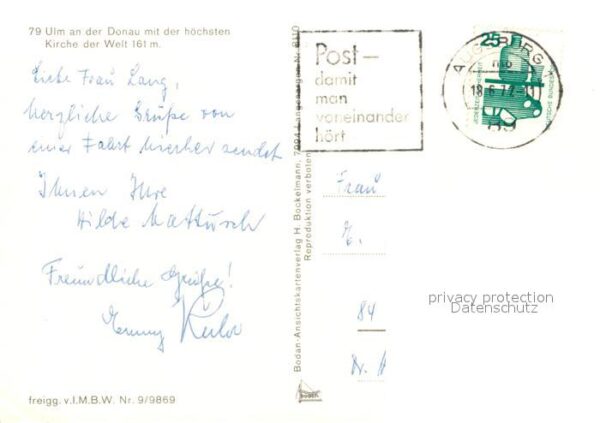 79 Ulm an der Donau mit der höchsten
Kirche der Welt 161 m.
Liebe Frau Lang,
herzliche Grüße von
einer Fahrt hierher sendet
Ihnen Ihre
Hilde Mattusch
Freundliche Grüße!
freigg. v.I.M.B.W. Nr. 9/9869
Bodan-Ansichtskartenverlag H. Bockelmann, 7994 Langenargen Nr. 8110
Reproduktion verboten
BODAN
Post –
damit
man
voneinander
hört
AUGSBURG
18.6.77
89
25
DEUTSCHE BUNDESPOST
Frau
E.
84
privacy protection
Datenschutz